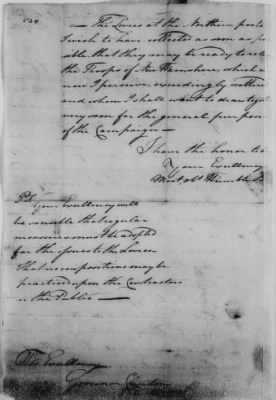 The Levies at the Northern posts
I wish to have collected as soon as pos
sible that they may be ready to rele
the Troops of New Hampshire, which a
now I perceive, exceedingly
and whom I shall want to draw toge
my soon for the general purpose
of the Campaign —
I have the honor to
Your Excellency
Most Obt Humble
PS. Your Excellency will
be sensible that regular
measures must be adopted
for the issues to the Levies
that no impositions may be
practised upon the Contractors
or the Public —
His Excellency
Governor Clinton